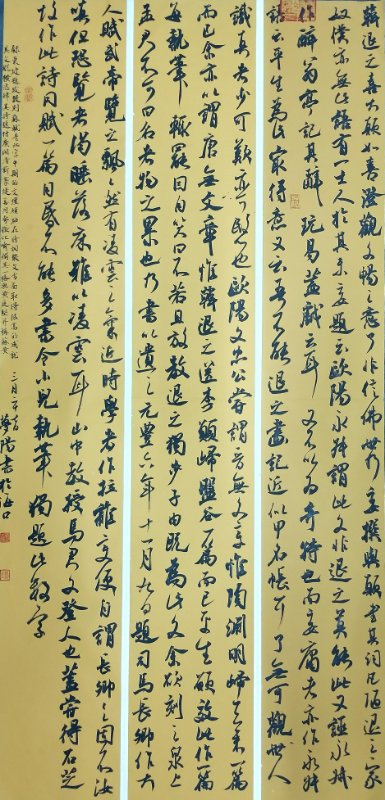 韓退之喜大顛如喜澄觀文暢之意了非信佛世乃妄撰與顛書其詞凡陋退之家
奴僕亦無此語有一士人於其末妄題云歐陽永叔謂此文非退之莫能此又誣永叔
作醉翁亭記其辭玩易蓋戲云耳又不以為奇特也而妄庸者亦作永叔
語云平生為此最得意又云吾不能退之畫記近似甲名帳耳了無可觀世人
識真者少可歎亦可愍也歐陽文忠公嘗謂晉無文章惟陶淵明歸去來一篇
而已余亦以謂唐無文章惟韓退之送李願歸盤谷一篇而已平生願效此作一篇
每執筆輒罷因自笑曰不若且放教退之獨步子由既為此文余欲刻之泉上
孟君不可曰名者物之累也乃書以遺之元豐六年十一月九日題司馬長卿作大
人賦武帝覽之飄飄然有凌雲之氣近時學者作拉雜變便自謂長卿長卿固不汝
嗔但恐覽者渴睡落床難以凌雲耳山中教授馬君文登人也蓋嘗得石芝
故作此詩同賦一篇目昏不能多書令小兒執筆獨題此數字
書於海口